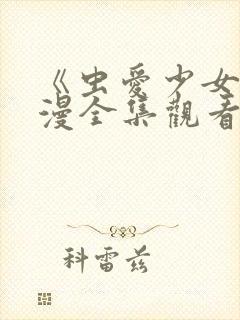 《虫爱少女
漫全集觀看
科雷兹